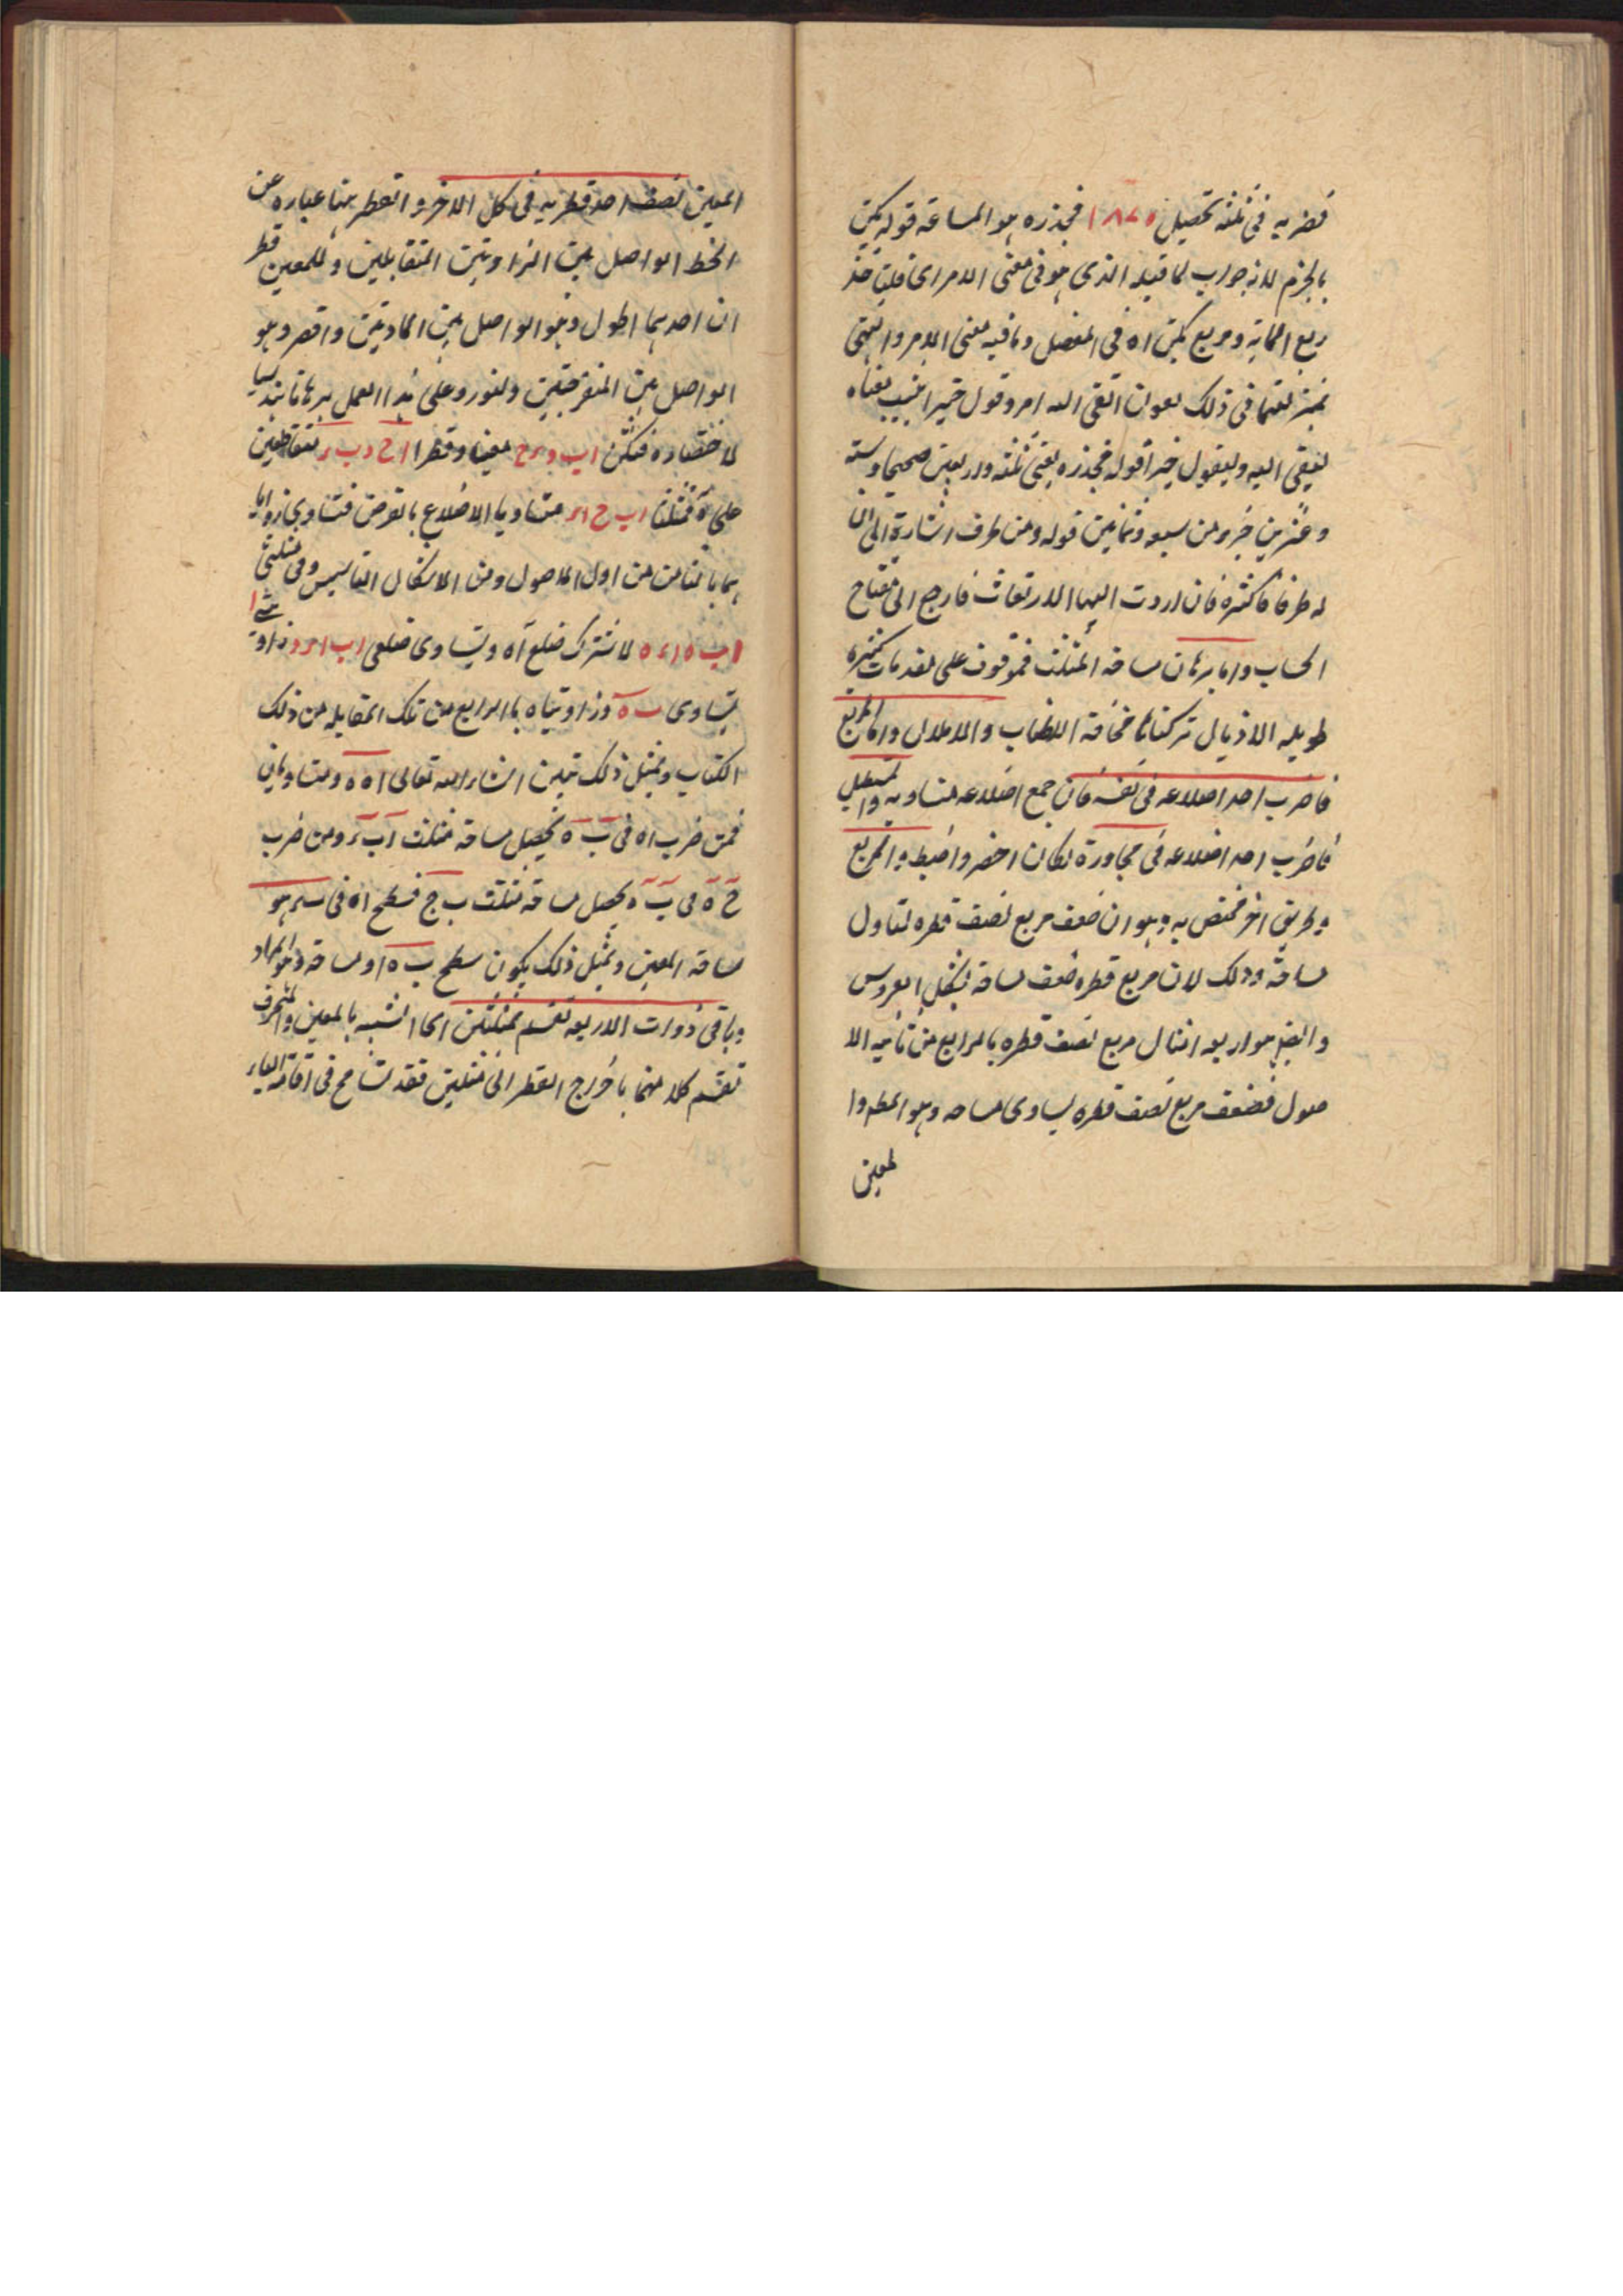 فضربه فى ثلثه تحصيل ١٨٧٥ فجذره هو المساحة قوله يكن
بالجزم لانه جواب لما قبله الذى هو فى معنى الامر اى فليؤخذ
ربع المحاية ومربع يكن اه فى المفصل وما فيه معنى الامر والنهى
بمنزلتهما فى ذلك تقول اتقى الله امرو وقول خيرا يثيب معناه
ليتقى الله وليقول خيرا قوله فجذره يعنى ثلثه واربعين صحيحا وستة
وعشرين جزء من سبعه وثمانين قوله ومن طرف اشارة الى ان
له طرفا كثيره فان اردت اليها الارتقاء فارجع الى مفتاح
الحساب واما برهان مساحه المثلث فموقوف على مقدمات كثيرة
طويله الاذيال تركناها مخافة اللطناب والاملال واما المربع
فاضرب احد اضلاعه فى نفسه فان جمع اضلاعه متساويه والمستطيل
فاضرب احد اضلاعه فى مجاورة لكان اخصر واضبط والمربع
وطريق اخر مختص به وهو ان ضعف مربع نصف قطره لتاول
مساحته وذلك لان مربع قطره ضعف مساحة بشكل العروس
وايضا هو اربعه امثال مربع نصف قطره بالرابع من ثانيه الا
صول فضعف مربع نصف قطره يساوى مساحه وهو المط وا
لمعين
المعين نصف احد قطريه فى كل الاخر والقطر هنا عباره عن
الخط الواصل بين الزاويتين المتقابلين وللمعين قطر
ان احدهما اطول وهو الواصل بين الحادتين واقصر وهو
الواصل بين المنفرجتين ولنورد على هذا العمل برهانا هندسيا
لاختصاره فنكن اب وء ح معينا وقطرا اح وب ء متقاطعين
على ه فمثلثا اب ح اء متساويا الاضلاع بالفرض فتساوى زوايا
هما بالثامن من اول الاصول ومن الاشكال التاسيس وفى مثلثى
اب ه اء ه لاشتراك ضلع اه وتساوى ضلعى اب اء وزاوية
يتساوى ب ه وزاويتاه بالرابع من تلك المقابله من ذلك
الكتاب وبمثل ذلك تبين انشاء الله تعالى اه ه ومتساويان
فمن ضرب اه فى ب ه يحصل مساحة مثلث اب ء ومن ضرب
ح ه فى ب ه يحصل مساحة مثلث ب ج فسطح اه فى هو
مساحة المعين وبمثل ذلك يكون سطح ب ه او مساحة وهو المراد
وباقى ذوات الاربعه تقسم بمثلثين اى الشبيه بالمعين والمنحرف
تقسم كلا منهما باخراج القطر الى مثلثين فقد تسامح فى اقامة الياء